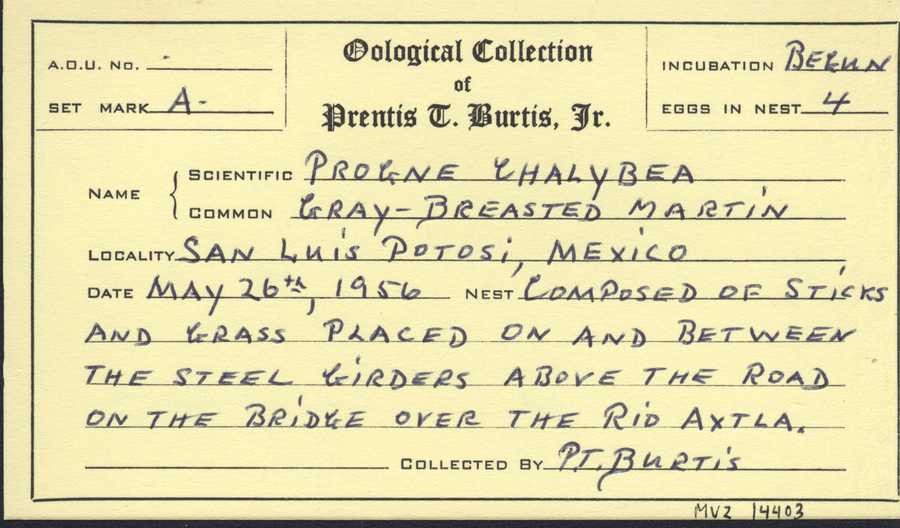 A.O.U. No. -
Set Mark A-
Oological Collection
of
Prentis T. Burtis, Jr.
Incubation Begun
Eggs in Nest 4
Name
Scientific Progne Chalybea
Common Gray-Breasted Martin
Locality San Luis Potosi, Mexico
Date May 26th, 1956 Nest Composed of Sticks
and Grass Placed on and Between
the Steel Girders Above the Road
on the Bridge over the Rio Axtla.
Collected By P.T. Burtis
MVZ 14403